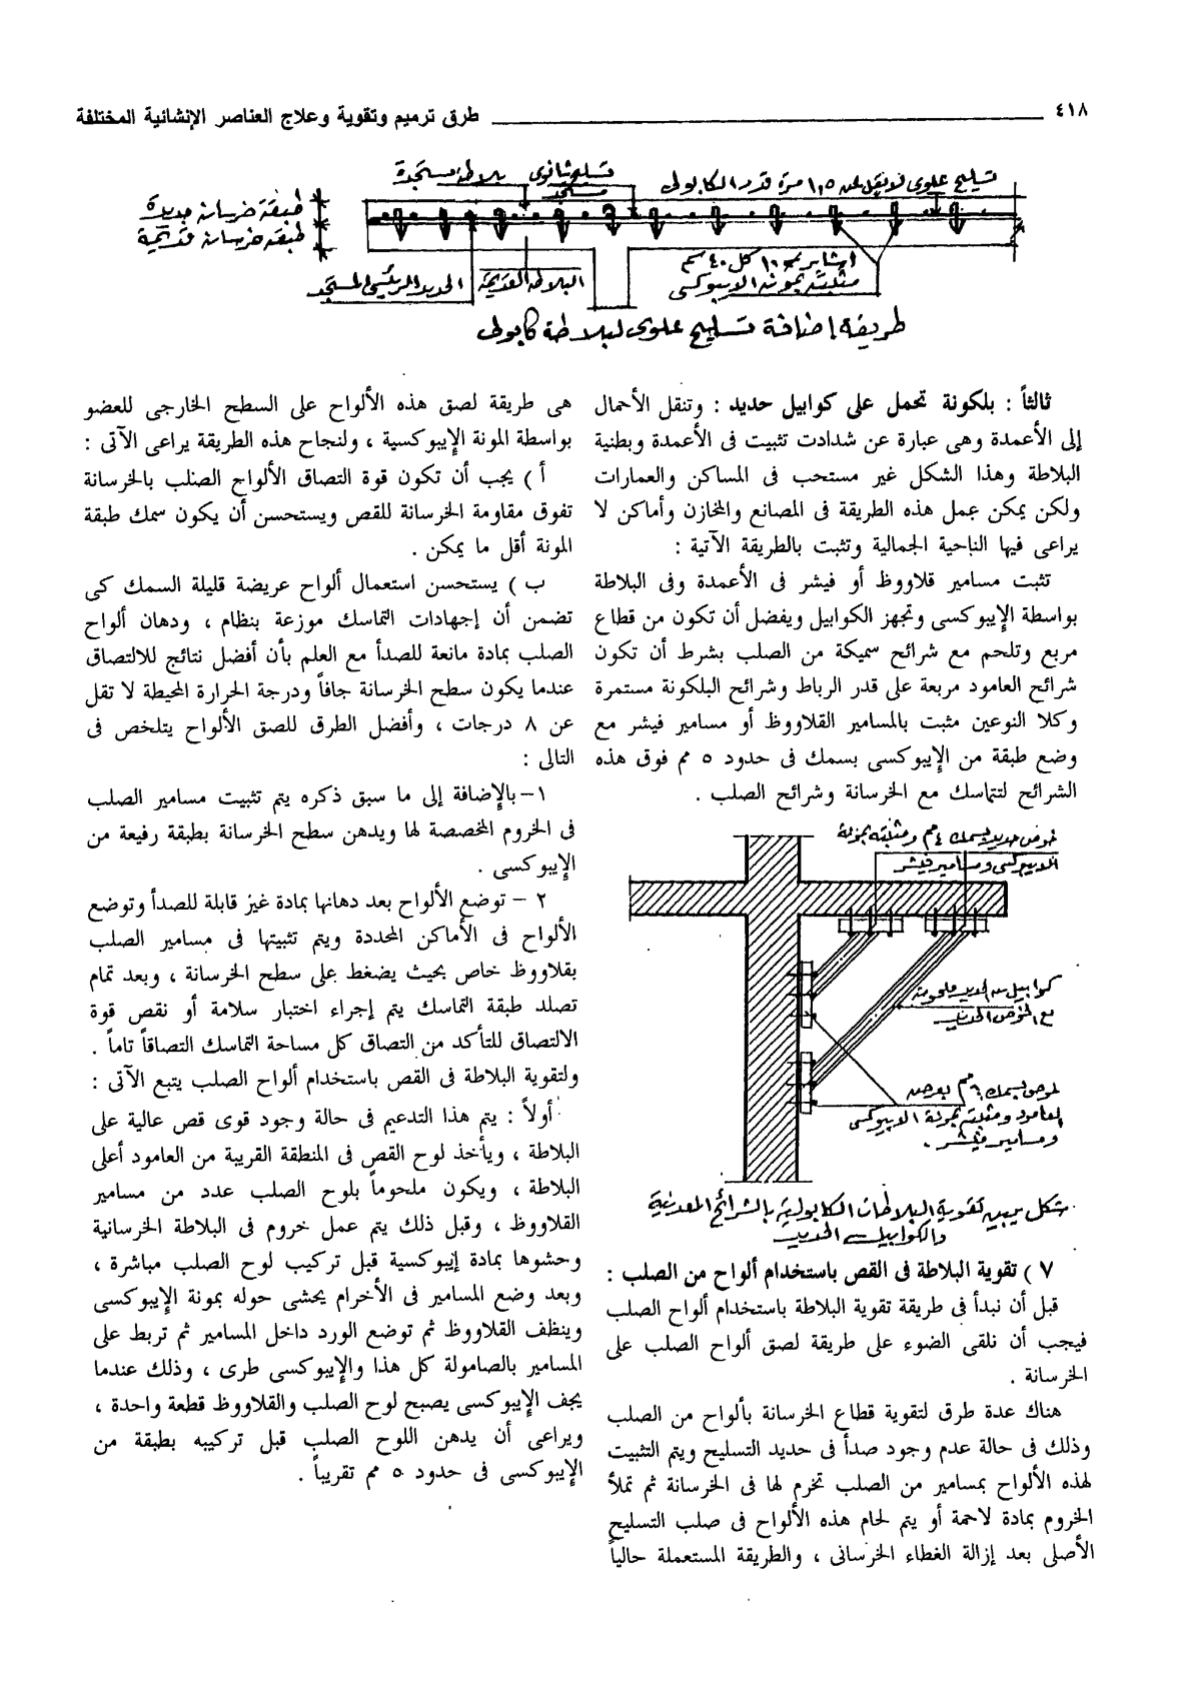 ٤١٨
طرق ترميم وتقوية وعلاج العناصر الإنشائية المختلفة
تسليح علوى لا يقل عن ١,٥ مرة قدر الكابولى
تسليح ثانوى
مستجد
بلاطة مستجدة
طبقة خرسانة جديدة
طبقة خرسانة قديمة
اشاير ١٠ كل ٤٠ سم
مثبتة بمونة الايبوكسى
البلاطة القديمة
الحديد الرئيسى المستجد
طريقة إضافة تسليح علوى لبلاطة كابولى
ثالثاً : بلكونة تحمل على كوابيل حديد : وتنقل الأحمال
إلى الأعمدة وهى عبارة عن شدادت تثبيت فى الأعمدة وبطنية
البلاطة وهذا الشكل غير مستحب فى المساكن والعمارات
ولكن يمكن عمل هذه الطريقة فى المصانع والمخازن وأماكن لا
يراعى فيها الناحية الجمالية وتثبت بالطريقة الآتية :
تثبت مسامير قلاووظ أو فيشر فى الأعمدة وفى البلاطة
بواسطة الإيبوكسى وتجهز الكوابيل ويفضل أن تكون من قطاع
مربع وتلحم مع شرائح سميكة من الصلب بشرط أن تكون
شرائح العامود مربعة على قدر الرباط وشرائح البلكونة مستمرة
وكلا النوعين مثبت بالمسامير القلاووظ أو مسامير فيشر مع
وضع طبقة من الإيبوكسى بسمك فى حدود ٥ مم فوق هذه
الشرائح لتتماسك مع الخرسانة وشرائح الصلب .
خوص حديد بسمك ٤ مم ومثبته بمونة
الايبوكسى ومسامير فيشر
كوابيل من الحديد ملحومة
مع الخوص الحديد
خوص بسمك ٦ مم بعرض
العامود ومثبتة بمونة الايبوكسى
ومسامير فيشر .
شكل يبين تقوية البلاطات الكابولية بالشرائح المعدنية
والكوابيل الحديد
٧ ) تقوية البلاطة فى القص باستخدام ألواح من الصلب :
قبل أن نبدأ فى طريقة تقوية البلاطة باستخدام ألواح الصلب
فيجب أن نلقى الضوء على طريقة لصق ألواح الصلب على
الخرسانة .
هناك عدة طرق لتقوية قطاع الخرسانة بألواح من الصلب
وذلك فى حالة عدم وجود صدأ فى حديد التسليح ويتم التثبيت
لهذه الألواح بمسامير من الصلب تخرم لها فى الخرسانة ثم تملأ
الخروم بمادة لاحمة أو يتم لحام هذه الألواح فى صلب التسليح
الأصلى بعد إزالة الغطاء الخرسانى ، والطريقة المستعملة حالياً
هى طريقة لصق هذه الألواح على السطح الخارجى للعضو
بواسطة المونة الإيبوكسية ، ولنجاح هذه الطريقة يراعى الآتى :
أ ) يجب أن تكون قوة التصاق الألواح الصلب بالخرسانة
تفوق مقاومة الخرسانة للقص ويستحسن أن يكون سمك طبقة
المونة أقل ما يمكن .
ب ) يستحسن استعمال ألواح عريضة قليلة السمك كى
تضمن أن إجهادات التماسك موزعة بنظام ، ودهان ألواح
الصلب بمادة مانعة للصدأ مع العلم بأن أفضل نتائج للالتصاق
عندما يكون سطح الخرسانة جافاً ودرجة الحرارة المحيطة لا تقل
عن ٨ درجات ، وأفضل الطرق للصق الألواح يتلخص فى
التالى :
١- بالإضافة إلى ما سبق ذكره يتم تثبيت مسامير الصلب
فى الخروم المخصصة لها ويدهن سطح الخرسانة بطبقة رفيعة من
الإيبوكسى .
٢ - توضع الألواح بعد دهانها بمادة غيز قابلة للصدأ وتوضع
الألواح فى الأماكن المحددة ويتم تثبيتها فى مسامير الصلب
بقلاووظ خاص بحيث يضغط على سطح الخرسانة ، وبعد تمام
تصلد طبقة التماسك يتم إجراء اختبار سلامة أو نقص قوة
الالتصاق للتأكد من التصاق كل مساحة التماسك التصاقاً تاماً .
ولتقوية البلاطة فى القص باستخدام ألواح الصلب يتبع الآتى :
أولاً : يتم هذا التدعيم فى حالة وجود قوى قص عالية على
البلاطة ، ويأخذ لوح القص فى المنطقة القريبة من العامود أعلى
البلاطة ، ويكون ملحوماً بلوح الصلب عدد من مسامير
القلاووظ ، وقبل ذلك يتم عمل خروم فى البلاطة الخرسانية
وحشوها بمادة إيبوكسية قبل تركيب لوح الصلب مباشرة ،
وبعد وضع المسامير فى الأخرام يحشى حوله بمونة الإيبوكسى
وينظف القلاووظ ثم توضع الورد داخل المسامير ثم تربط على
المسامير بالصامولة كل هذا والإيبوكسى طرى ، وذلك عندما
يجف الإيبوكسى يصبح لوح الصلب والقلاووظ قطعة واحدة ،
ويراعى أن يدهن اللوح الصلب قبل تركيبه بطبقة من
الإيبوكسى فى حدود ٥ مم تقريباً .